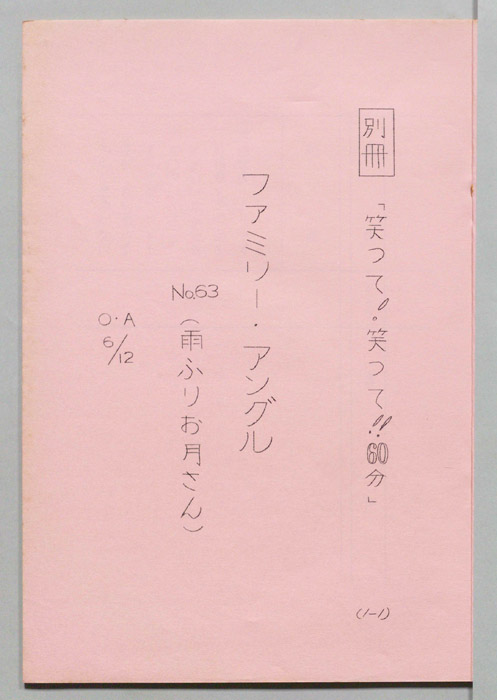 別冊
「笑って!笑って!!60分」
ファミリー・アングル
No.63
(雨ふりお月さん)
O・A
6/12
(1-1)